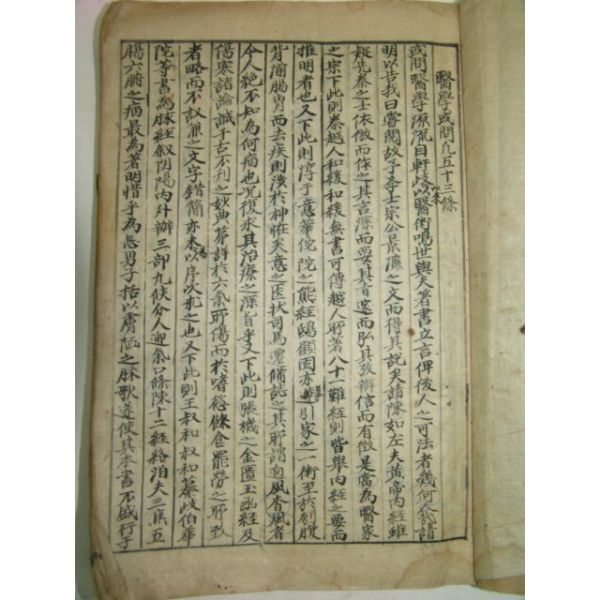 醫學或問凡五十三條
或問醫學源流自軒岐以來以醫術鳴世與夫著書立言俾後人之可法者幾何人
明以告我曰嘗聞故予宗公景濂之文而得其說矣請陳如左夫黃帝內經雖
疑先秦之士依倣而作之其言深而要其旨邃而弘其攷辯信而有徵是當為醫家
之宗下此則秦越人和緩和緩無書可傳越人所著八十一難經則皆舉內經之要而
推明者也又下此則淳于意華佗佗之熊經鴟顧固亦導引家之一術至於刳腹
背湔腸胃而去疾則涉於神怪矣意之医狀司馬遷備誌之其所謂迵風沓風者
今人絕不知為何病也况復求其治療之深旨乎又下此則張機之金匱玉函經及
傷寒諸論誠千古不刊之妙典第詳於六氣所傷而於嗜慾食罷勞之所致
者略而不議兼之文字錯簡亦未易以序次求之也又下此則王叔和叔和纂岐伯華
佗等書為脉經叙阴陽內外辦三部九候分人迎氣口條陳十二經絡洎夫三焦五
臟六腑之病最為著明惜乎為忘男子括以膚陋之脉歌遂使其本書不盛行于